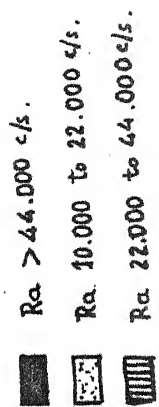 Ra > 44.000 c/s.
Ra 10.000 to 22.000 c/s.
Ra 22.000 to 44.000 c/s.